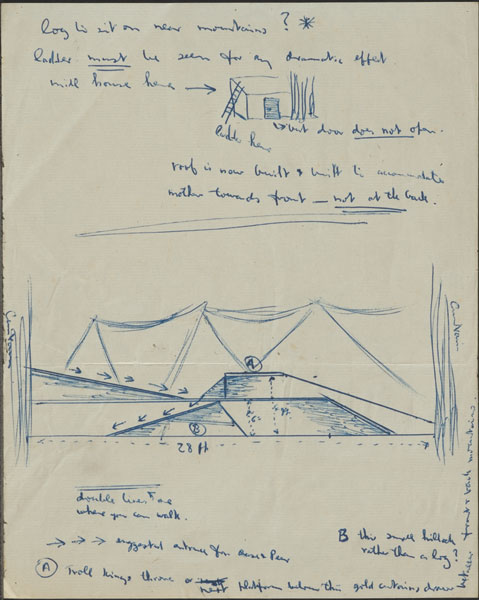 log to sit on near mountains? *
ladder must be seen for any dramatic effect
mill house here →
ladder here
but door does not open.
roof is now built & built to accommodate
mother towards front — not at the back.
Curtain
Curtain
A
B
28 ft
double lines are
where you can walk.
→ → → suggested entrance for Aase & Peer
B this small hillock
rather than a log?
A Troll kings throne or platform before the gold curtains draw
between front & back mountains.